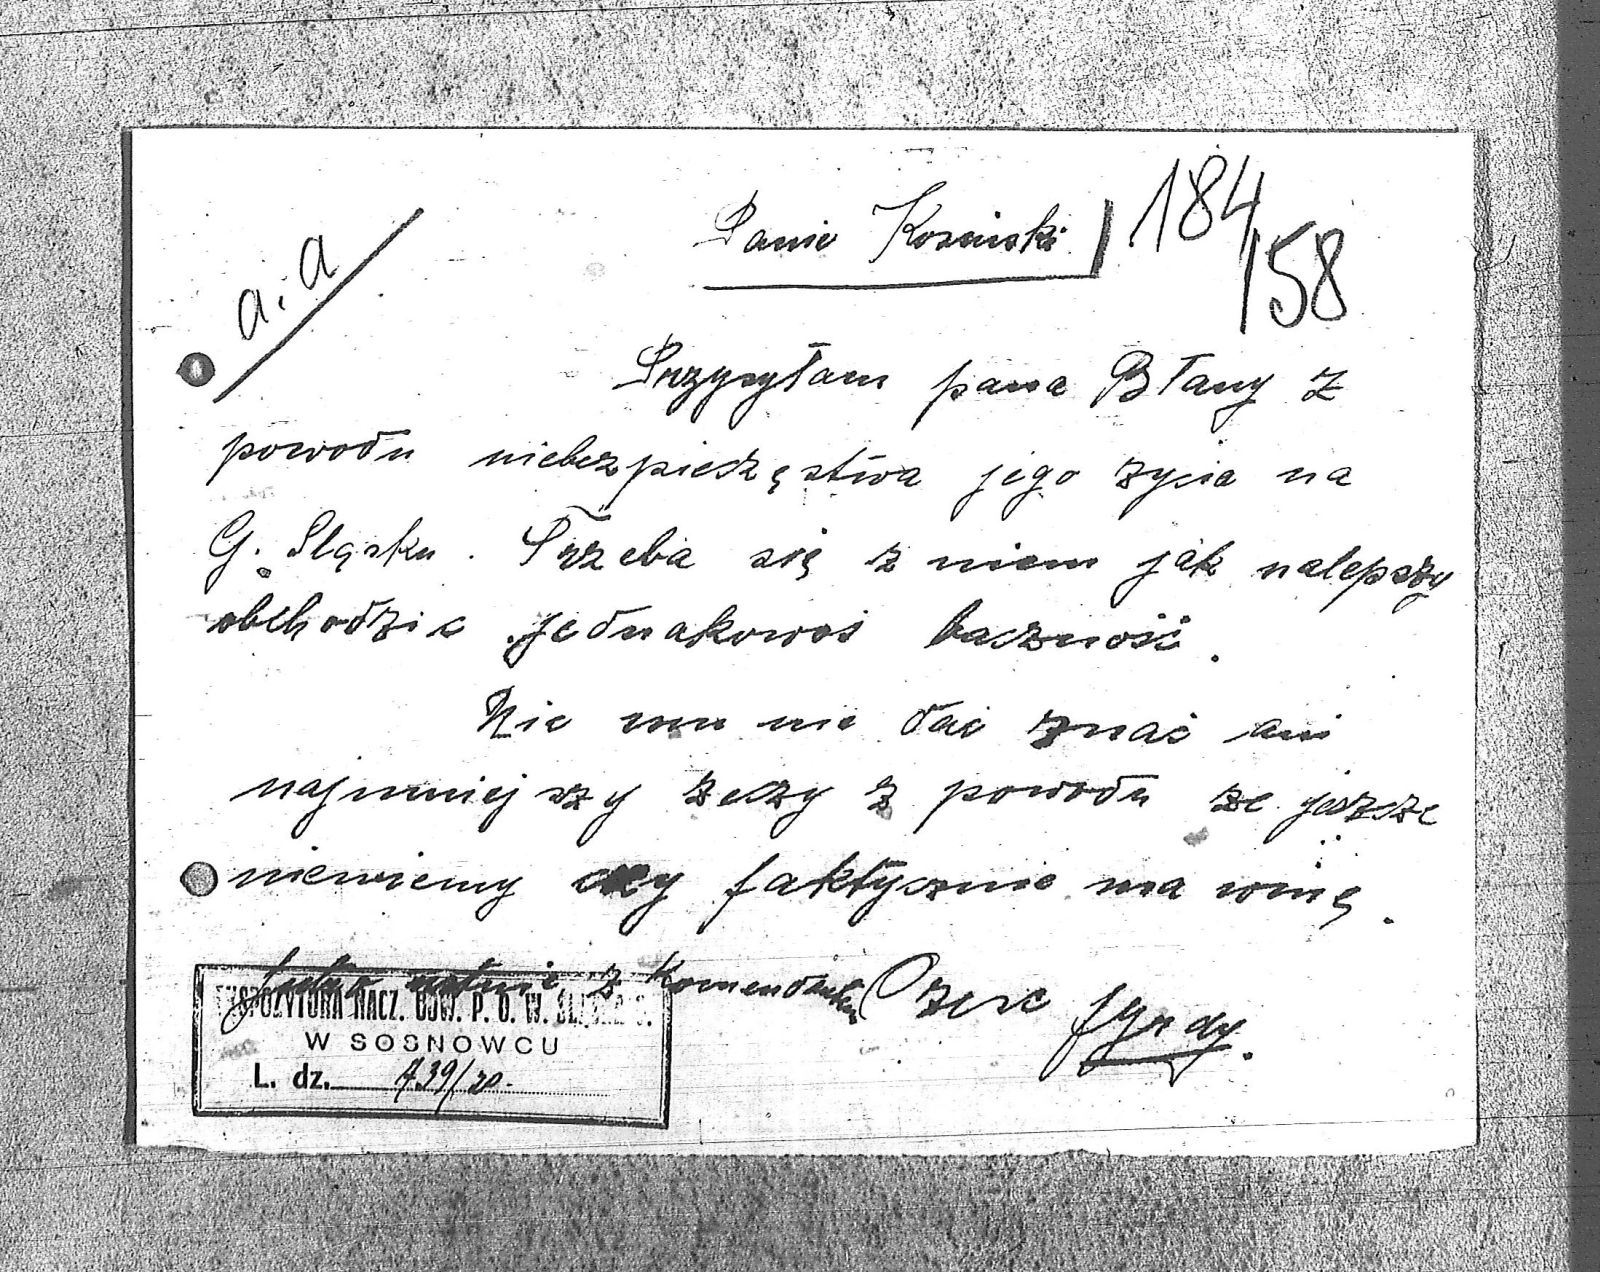 184/58
a. a
Panie Kosinski
Przysyłam pana Błany z
powodu niebezpieszęstwa jego zycia na
G. Sląsku. Trzeba się z niem jak nalepszy
obchodzic jednakowoś baczność.
Nic mu nie dać znać ani
najmniejszy zeczy z powodu ze jeszcze
niewiemy czy faktycznie ma winę.
z Komendantem Cześć
EKSPOZYTURA NACZ. DOW. P. O. W. ŚLĄSKA G.
W SOSNOWCU
L. dz. A39/20.